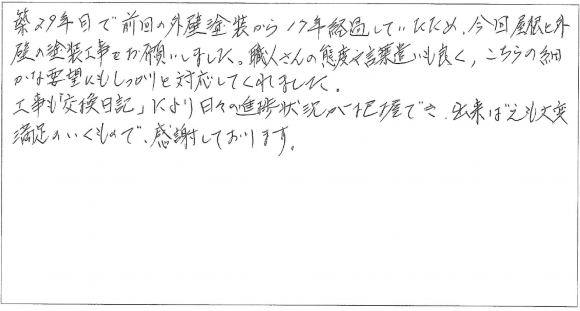 築29年目で前回の外壁塗装から17年経過していたため、今回屋根と外
壁の塗装工事をお願いしました。職人さんの態度や言葉遣いも良く、こちらの細
かな要望にもしっかりと対応してくれました。
工事も「交換日記」により日々の進捗状況が把握でき、出来ばえも大変
満足のいくもので、感謝しております。